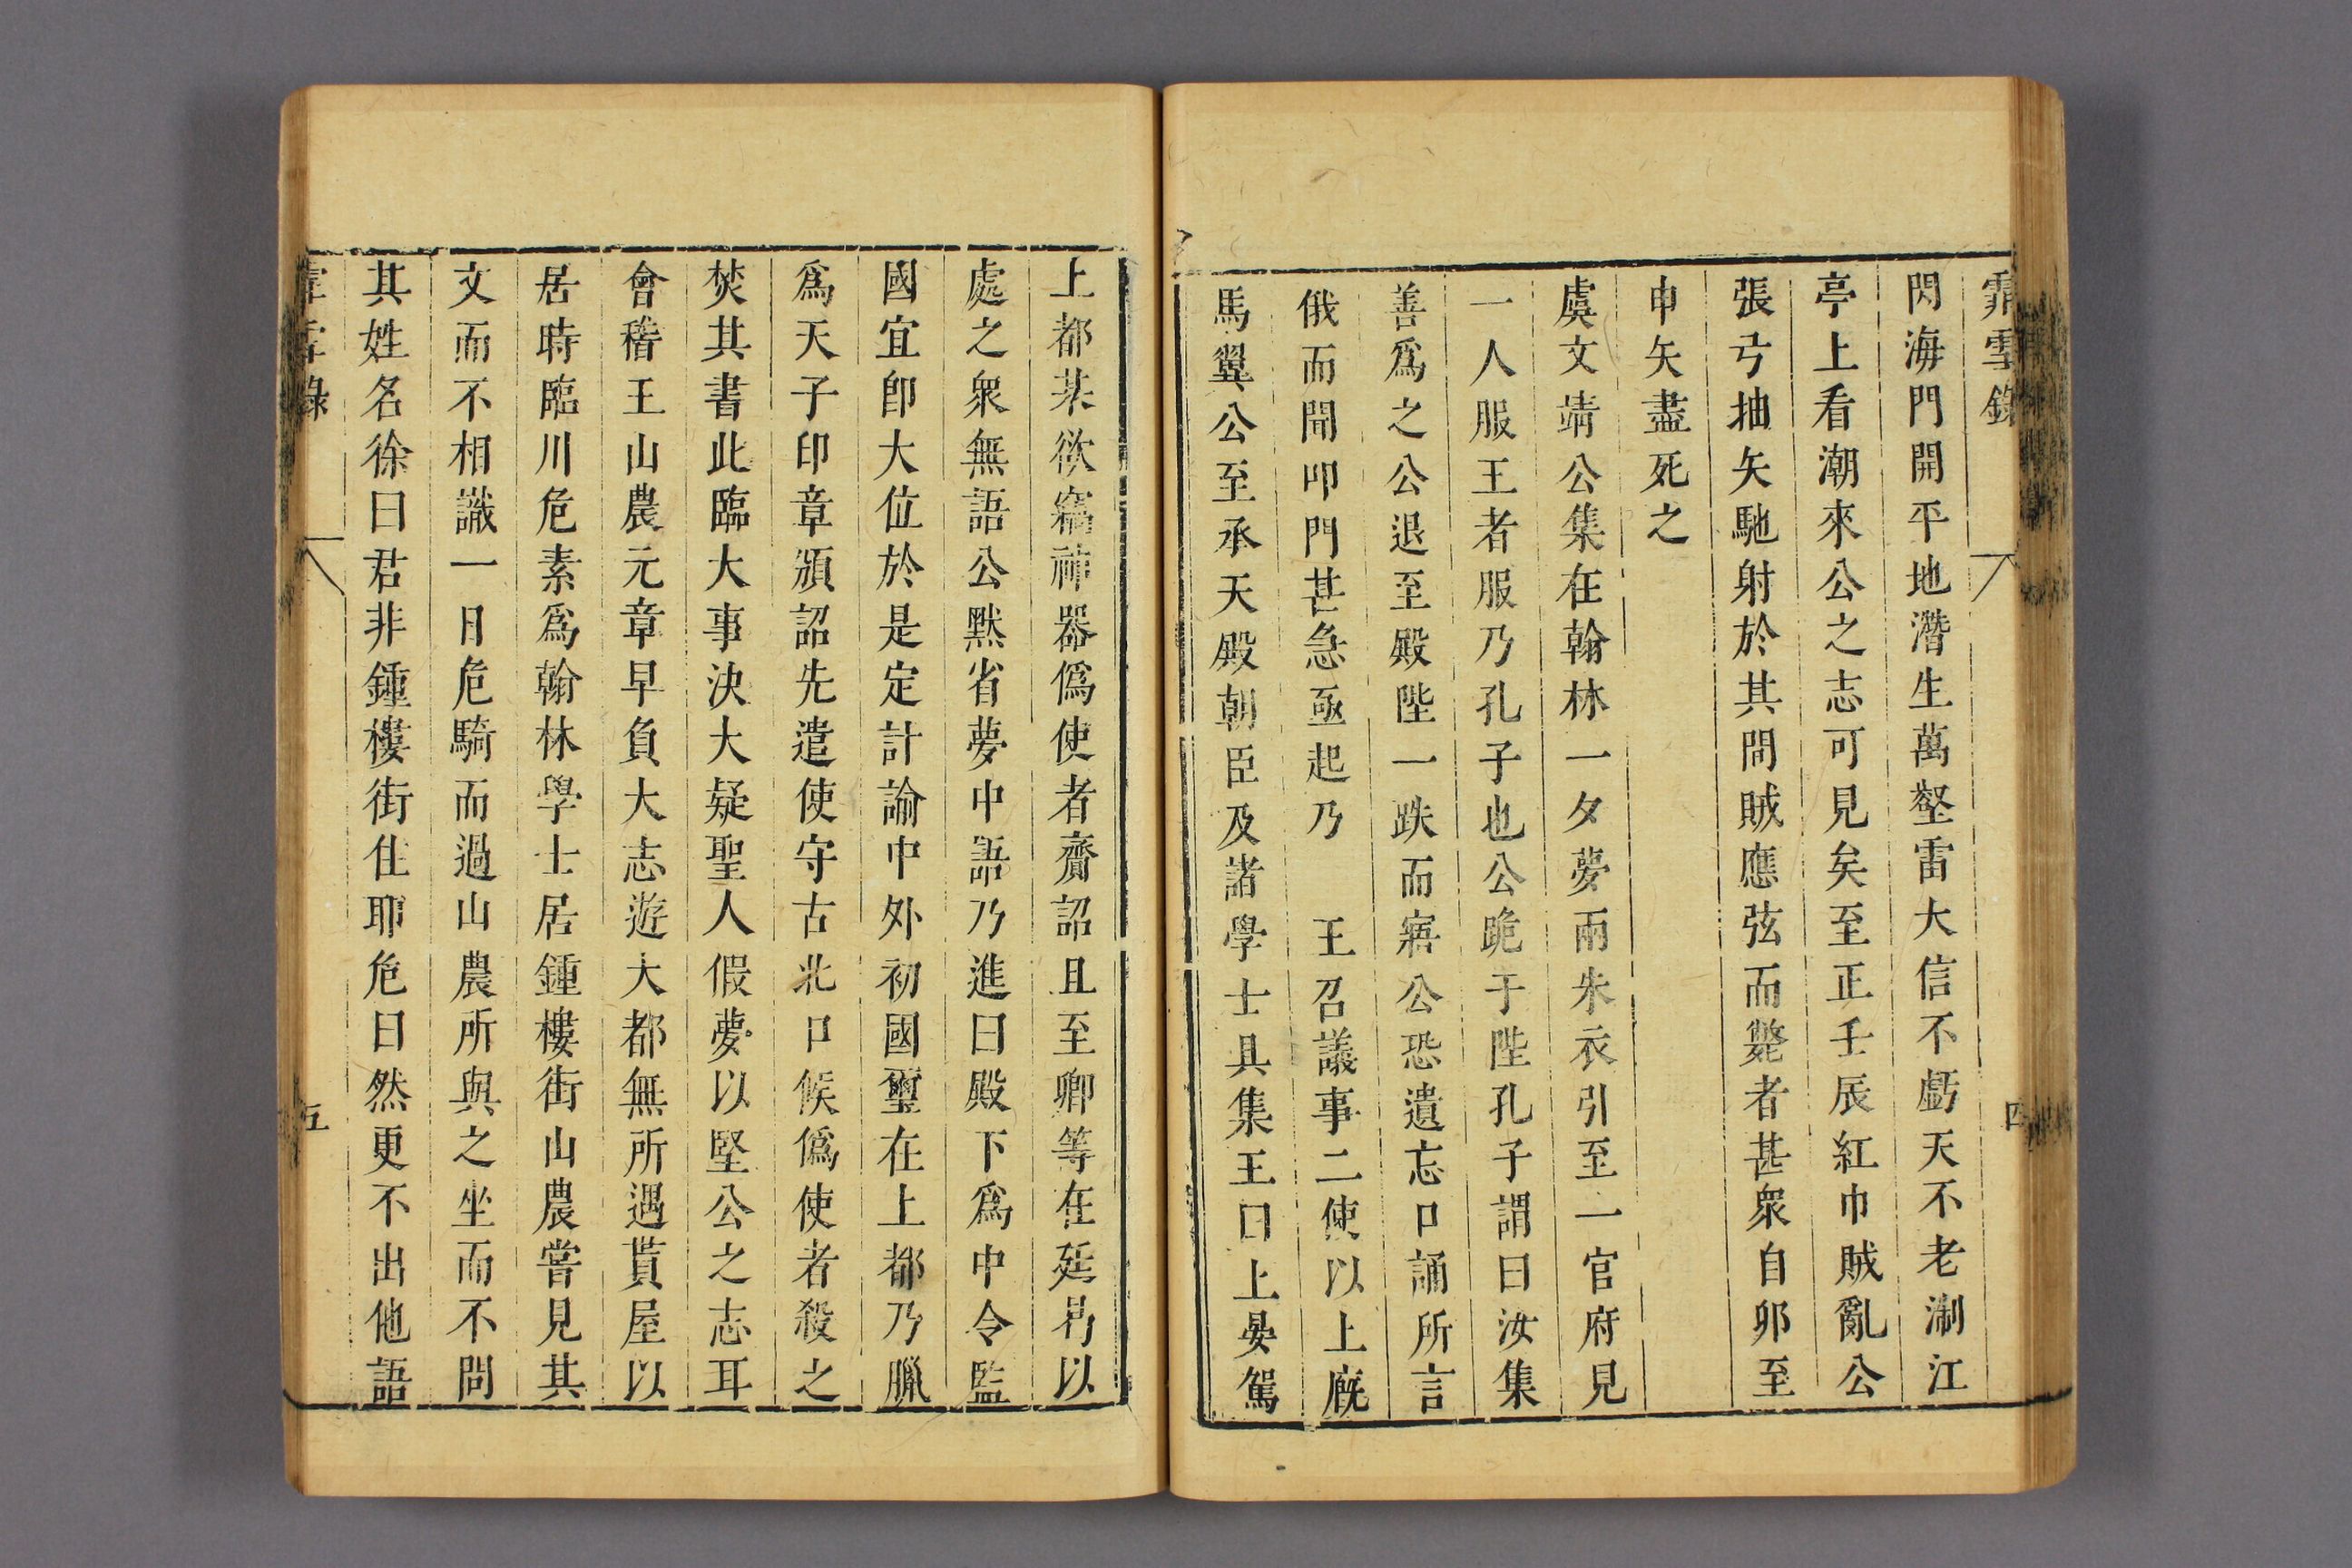 霏雪錄
四
閃海門開平地潛生萬壑雷大信不虧天不老淛江
亭上看潮來公之志可見矣至正壬辰紅巾賊亂公
張弓抽矢馳射於其間賊應弦而斃者甚衆自卯至
申矢盡死之
虞文靖公集在翰林一夕夢兩朱衣引至一官府見
一人服王者服乃孔子也公跪于陛孔子謂曰汝集
善爲之公退至殿陛一跌而寤公恐遺忘口誦所言
俄而聞叩門甚急亟起乃　王召議事二使以上廐
馬翼公至承天殿朝臣及諸學士具集王曰上晏駕
上都某欲竊神器僞使者齎詔且至卿等在廷昜以
處之衆無語公黙省夢中語乃進曰殿下爲中令監
國宜卽大位於是定計諭中外初國璽在上都乃臘
爲天子印章頒詔先遣使守古北口候僞使者殺之
焚其書此臨大事決大疑聖人假夢以堅公之志耳
會稽王山農元章早負大志遊大都無所遇貰屋以
居時臨川危素爲翰林學士居鍾樓街山農嘗見其
文而不相識一日危騎而過山農所與之坐而不問
其姓名徐曰君非鍾樓街住耶危曰然更不出他語
霏雪錄
五